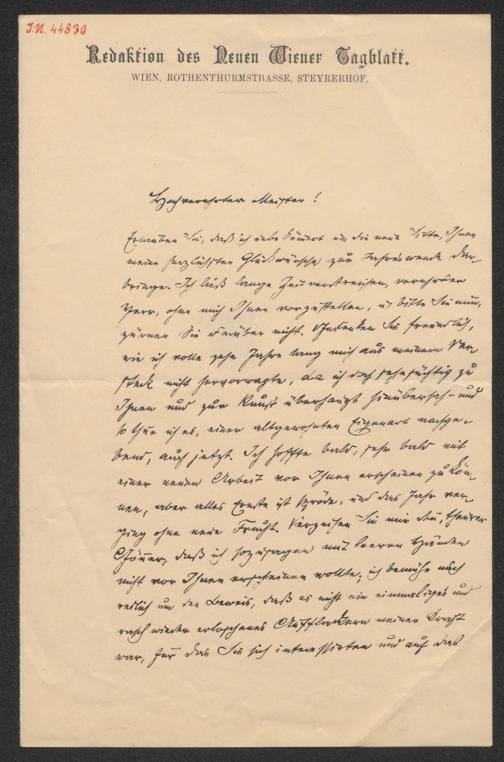 I.N. 44830
Redaktion des Neuen Wiener Tagblatt.
WIEN, ROTHENTHURMSTRASSE, STEYRERHOF.
Hochverehrter Meister!
Erlauben Sie, daß ich um die neue Ihnen
meine herzlichsten Glückwünsche zur Jahreswende dar-
bringe. Ich ließ lange Zeit verstreichen, verehrter
Herr, ohne mich Ihnen vorzustellen, u bitte Sie nun,
zürnen Sie darüber nicht. Bedenken Sie freundlich,
wie ich volle zehn Jahre lang mich aus meinem Ver-
steck nicht hervorwagte, da ich doch sehnsüchtig zu
Ihnen und zur Kunst überhaupt hinübersah – und
so thue ich es, einer altgewohnten Eigenart nachge-
bend, auch jetzt. Ich hoffte bald, sehr bald mit
einer neuen Arbeit vor Ihnen erscheinen zu kön-
nen, aber alles Ernste ist spröde, und das Jahr ver-
ging ohne neue Frucht. Verzeihen Sie mir nun, theurer
Gönner, daß ich sozusagen mit leeren Händen
nicht vor Ihnen erscheinen wollte; ich bemühe mich
redlich um den Beweis, daß es nicht ein einmaliges und
rasch wieder erloschenes Aufflackern meiner Kraft
war, für das Sie sich interessirten und auf das